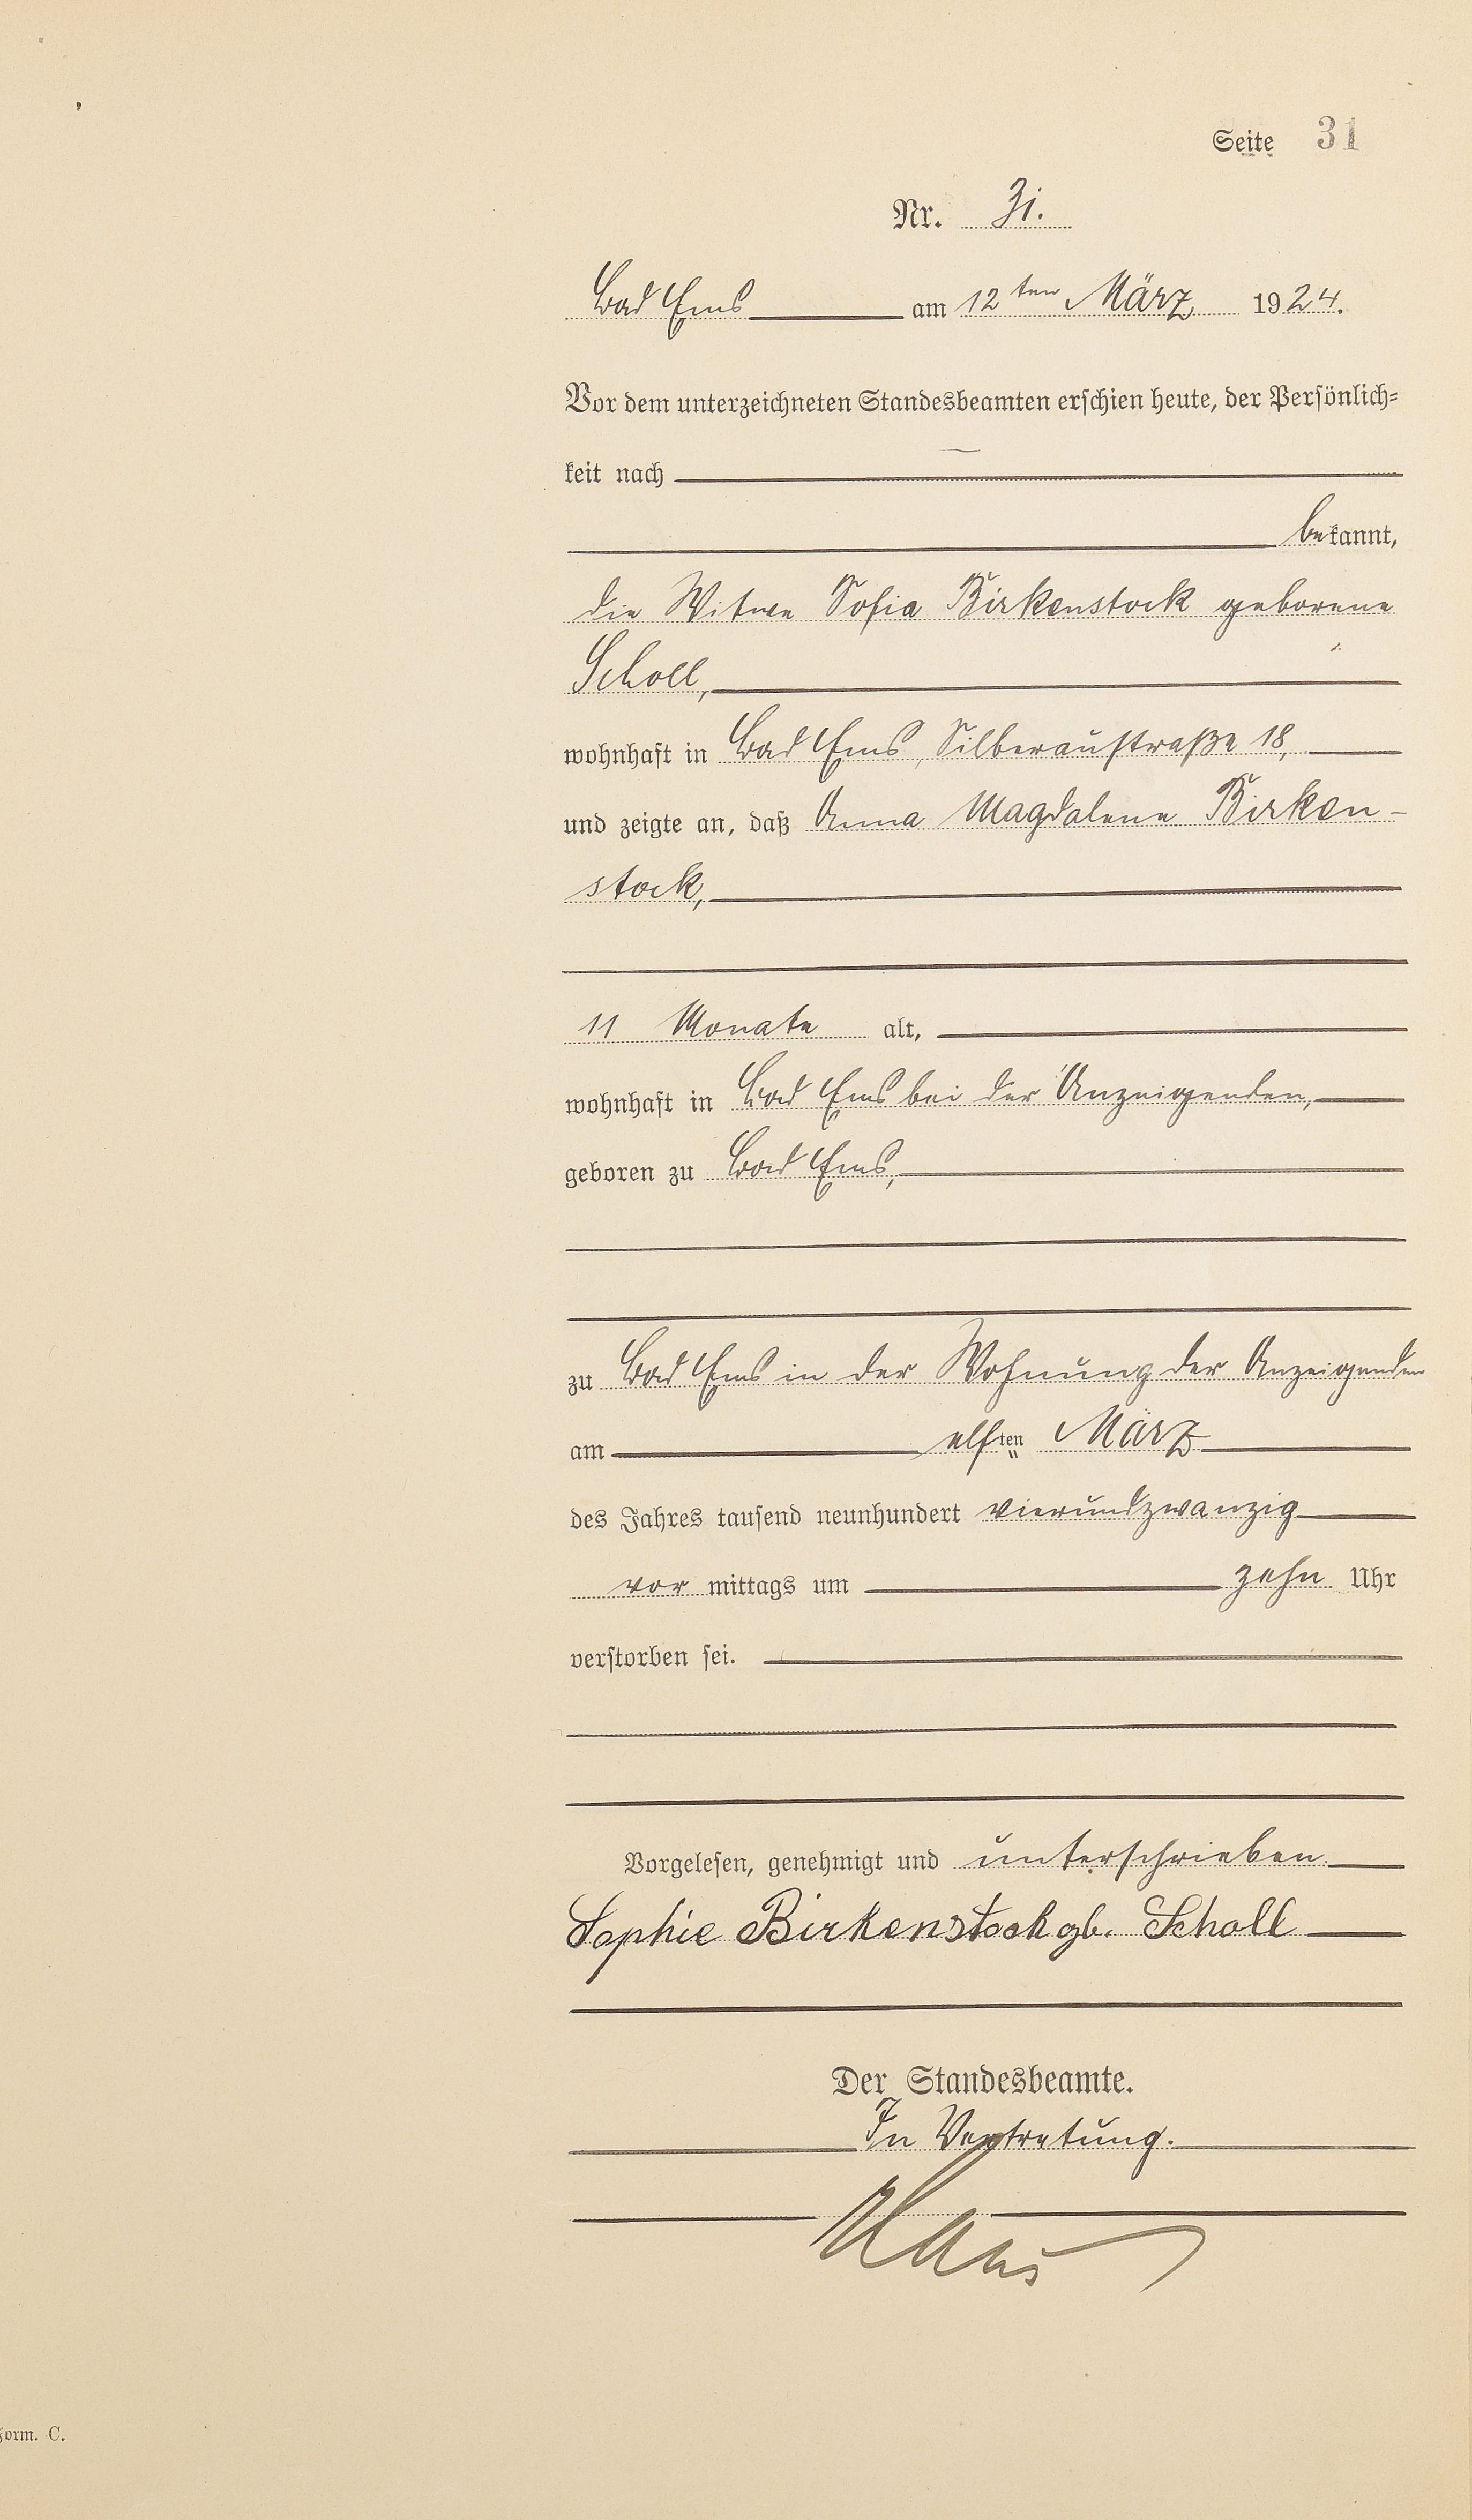 Seite 31
Nr. 31.
Bad Ems am 12ten März 1924.
Vor dem unterzeichneten Standesbeamten erschien heute, der Persönlich-
keit nach
bekannt,
die Witwe Sofia Birkenstock geborene
Scholl,
wohnhaft in Bad Ems, Silberaustraße 18,
und zeigte an, daß Anna Magdalene Birken-
stock,
11 Monate alt,
wohnhaft in Bad Ems bei der Anzeigenden,
geboren zu Bad Ems,
zu Bad Ems in der Wohnung der Anzeigenden
am elften März
des Jahres tausend neunhundert vierundzwanzig
vor mittags um zehn Uhr
verstorben sei.
Vorgelesen, genehmigt und unterschrieben.
Sophie Birkenstock gb. Scholl
Der Standesbeamte.
In Vertretung.
Form. C.